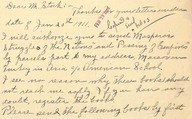 Dear Mr. Stark:- Thanks for your letter under
date of Jan 20. 1911.
I will authorize you to send Maspero's
Struggle of the Nations and Passing of Empires
by parcels post to my address, American
in care of American School.
I see no reason why these books should
not reach me safely. If you have any
doubt, register the books.
Please send the following books by first